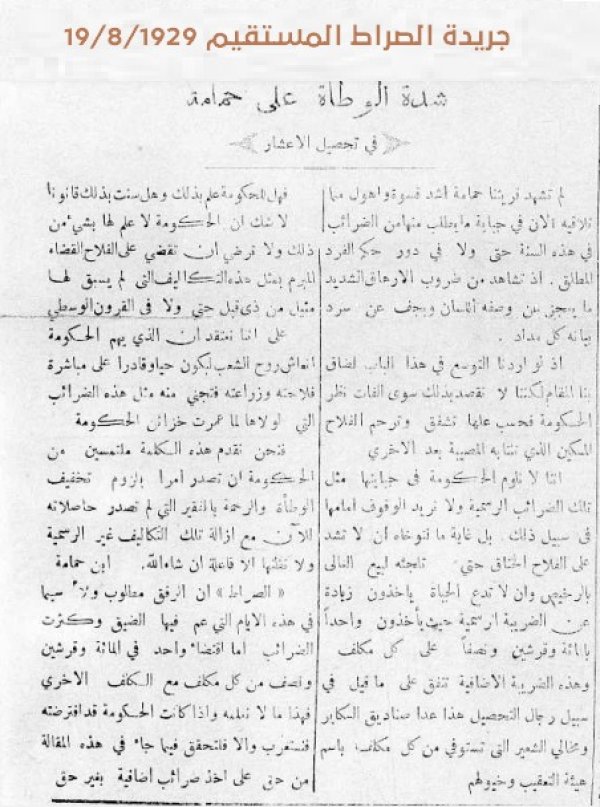 جريدة الصراط المستقيم 19/8/1929
شدة الوطأة على حمامة
في تحصيل الاعشار
لم تشهد قريتنا حمامة اشد قسوة واهول مما
تلاقيه الان في جباية ما يطلب منها من الضرائب
في هذه السنة حتى ولا في دور حكم الفرد
المطلق . اذ تشاهد من ضروب الارهاق الشديد
ما يعجز عن وصفه اللسان ويجف عن سرد
بيانه كل مداد .
اذ لو اردنا التوسع في هذا الباب لضاق
بنا المقام لكننا لا نقصد بذلك سوى الفات نظر
الحكومة فحسب علها تشفق وترحم الفلاح
المسكين الذي تنتابه المصيبة بعد الاخرى
اننا لا نلوم الحكومة في جبايتها مثل
تلك الضرائب الرسمية ولا نريد الوقوف امامها
في سبيل ذلك . بل غاية ما نتوخاه ان لا تشد
على الفلاح الخناق حتى تلجئه لبيع الغالى
بالرخيص وان لا تدع الجباة ياخذون زيادة
عن الضريبة الرسمية حيث يأخذون واحداً
بالمائة وقرشين ونصفاً على كل مكلف
وهذه الضريبة الاضافية تنفق على ما قيل في
سبيل رجال التحصيل هذا عدا صناديق السكاير
ومخالي الشعير التى تستوفي من كل مكلف باسم
هيئة التعقيب وخيولهم
فهل للحكومة علم بذلك وهل سنت بذلك قانونا
لا شك ان الحكومة لا علم لها بشيء من
ذلك ولا ترضى ان تقضي على الفلاح القضاء
المبرم بمثل هذه التكاليف التى لم يسبق لها
مثيل من ذي قبل حتي ولا فى القرون الوسطي
على اننا نعتقد ان الذي يهم الحكومة
انعاش روح الشعب ليكون حيا وقادرا على مباشرة
فلاحته وزراعته فتجني منه مثل هذه الضرائب
التي لولاها لما عمرت خزائن الحكومة
فنحن نقدم هذه الكلمة ملتمسين من
الحكومة ان تصدر امرا بلزوم تخفيف
الوطأة والرحمة بالفقير التي لم تصدر حاصلاته
للآن مع ازالة تلك التكاليف غير الرسمية
ولا نظنها الا فاعلة ان شاء الله. ابن حمامة
« الصراط » ان الرفق مطلوب ولا سيما
في هذه الايام التي عم فيها الضيق وكثرت
الضرائب اما اقتضاء واحد في المائة وقرشين
ونصف من كل مكلف مع الكلف الاخري
فهذا ما لا نعلمه واذا كانت الحكومة قد افترضته
فنستغرب والا فلتحقق فيما جاء في هذه المقالة
من حق على اخذ ضرائب اضافية بغير حق